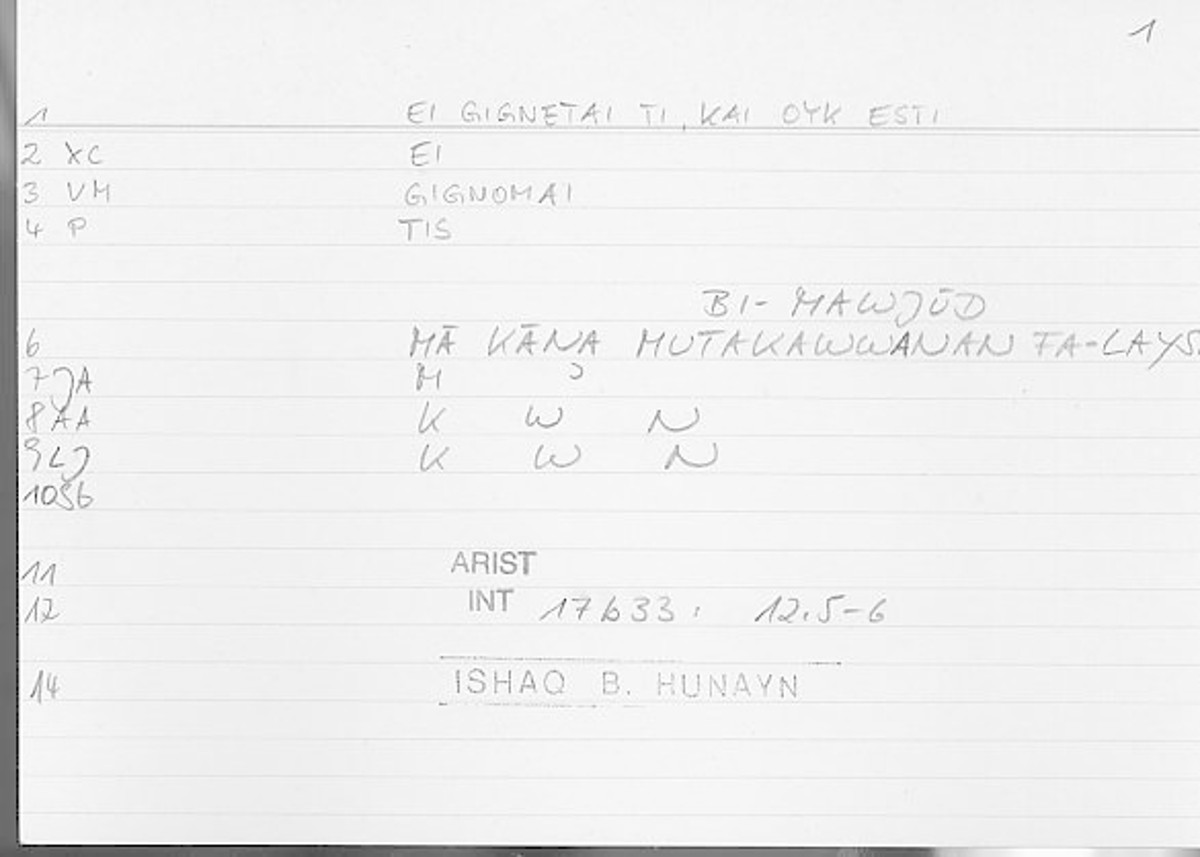 1
1 EI GIGNETAI TI, KAI OYK ESTI
2 XC EI
3 VM GIGNOMAI
4 P TIS
BI-MAWJŪD
6 MĀ KĀNA MUTAKAWWANAN FA-LAYS
7 JA M
8 AA K W N
9 LJ K W N
10 S6
11 ARIST
12 INT 17b33; 12.5-6
14 ISHAQ B. HUNAYN